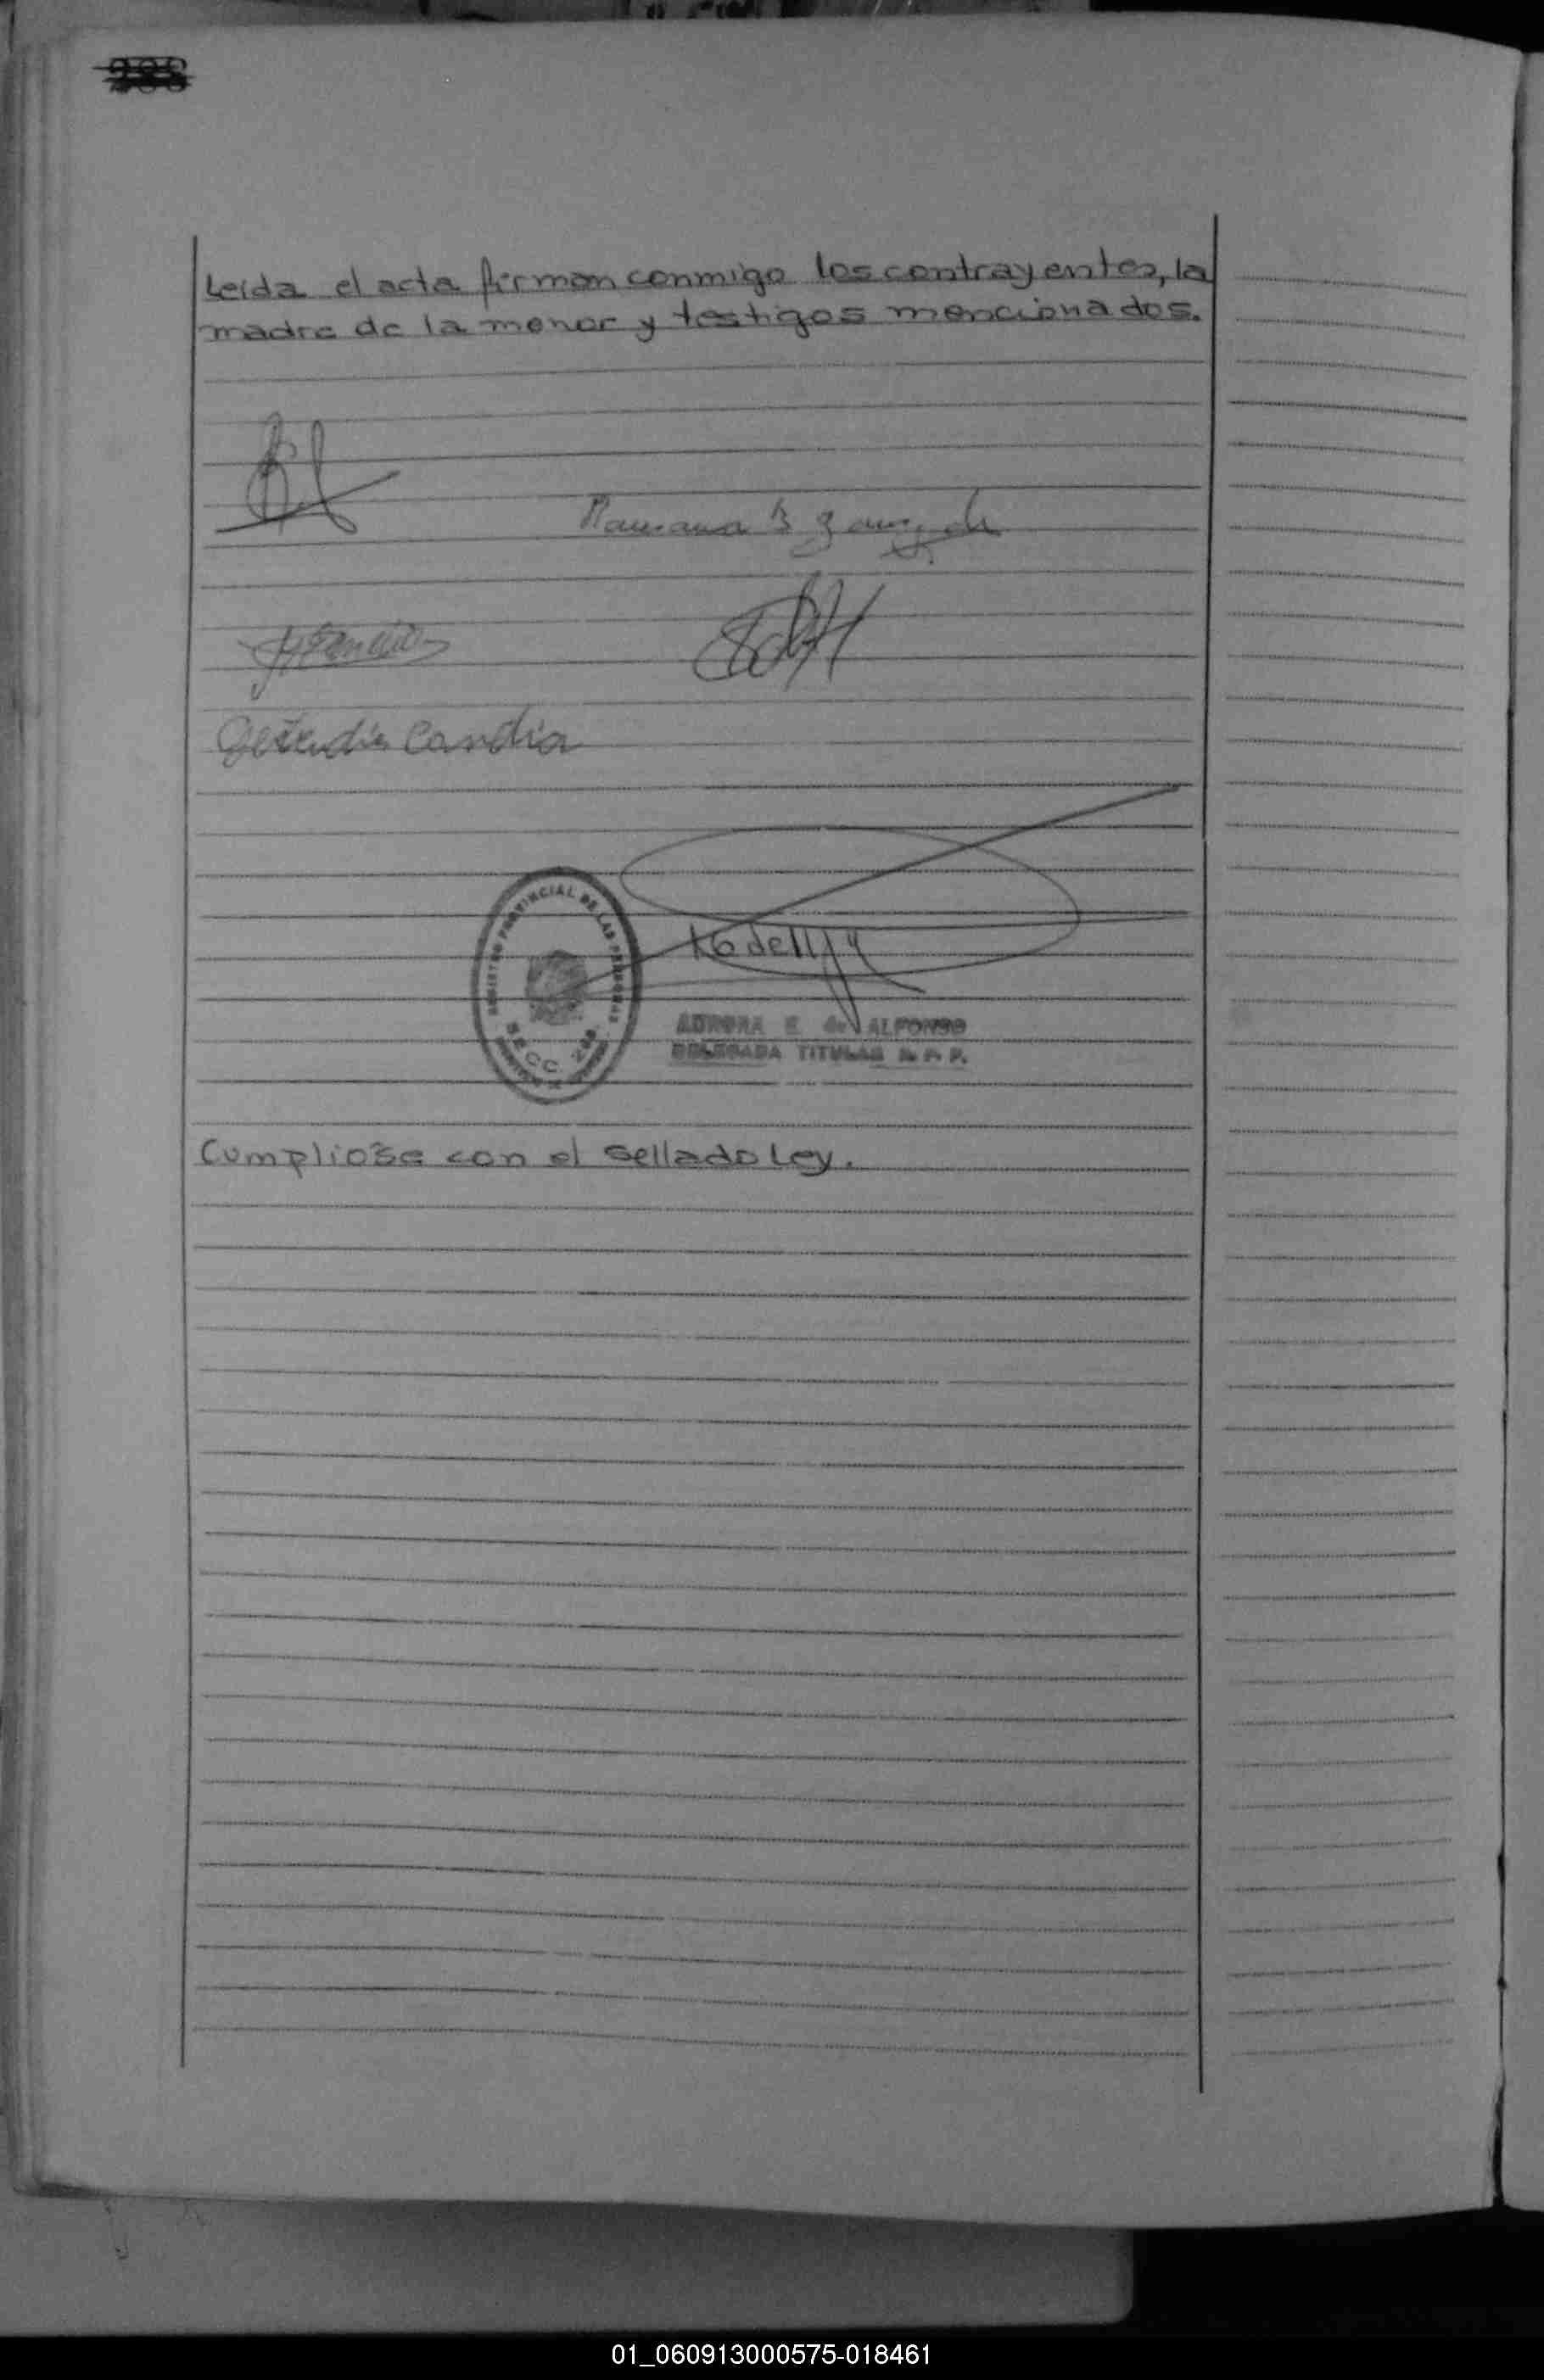 Leida el acta firman conmigo los contrayentes, la
madre de la menor y testigos mencionados.
Candia
REGISTRO PROVINCIAL DE LAS PERSONAS
SECC.
AURORA E. de ALFONSO
DELEGADA TITULAR R. P. P.
Cumpliose con el sellado Ley.
01_060913000575-018461